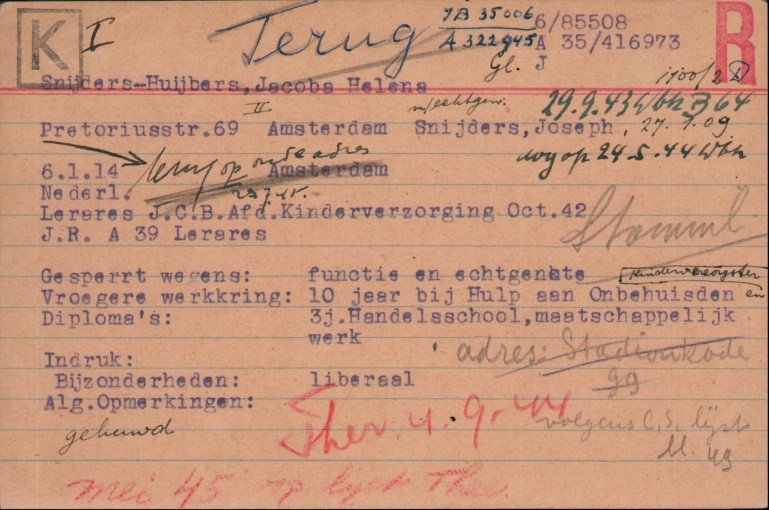 K I Terug JB 35006 6/85508 R
A 322945 A 35/416973
Gl. J
Snijders-Huijbers, Jacoba Helena
II m/echtgen: 29.9.43 Wbk B 64
Pretoriusstr.69 Amsterdam Snijders, Joseph, 27.7.09
terug op oude adres wog op 24.5.44 Wbk
6.1.14 Amsterdam
Nederl.
Lerares J.C.B.Afd.Kinderverzorging Oct.42
J.R. A 39 Lerares
Gesperrt wegens: functie en echtgenote
Vroegere werkkring: 10 jaar bij Hulp aan Onbehuisden en
Diploma's: 3j.Handelsschool,maatschappelijk
werk
adres: Stadionkade
99
Indruk:
Bijzonderheden: liberaal
Alg.Opmerkingen:
gehuwd
Ther. 4.9.44
volgens C.S. lijst
bl. 49
Mei 45 op lijst Ther.